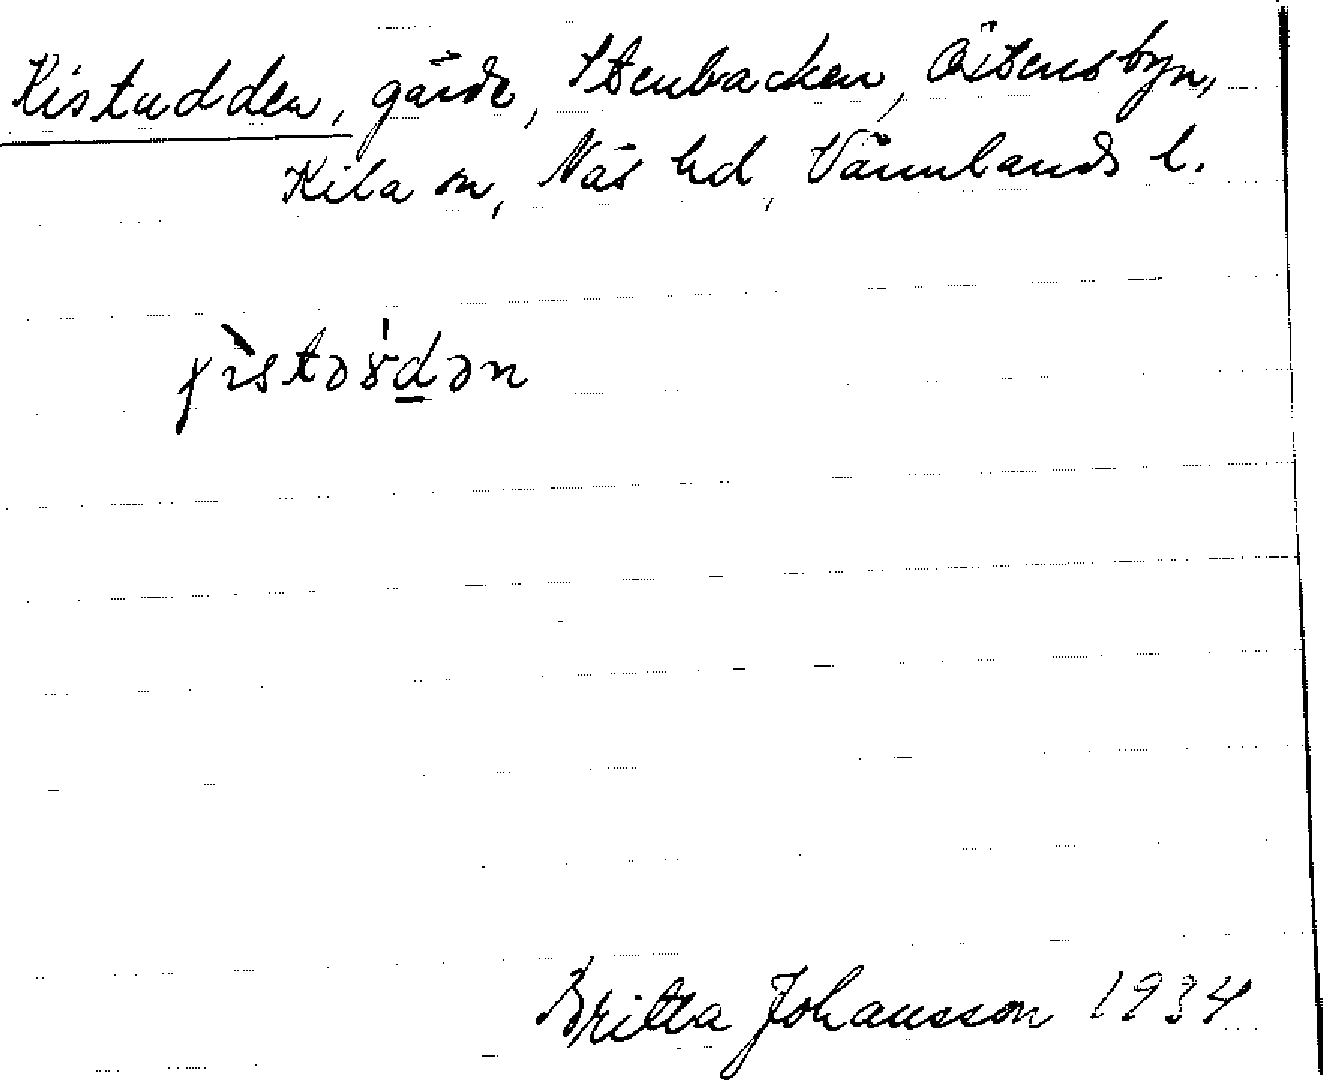 Kistudden, gärde, Stenbacken, Östensbyn,
Kila sn, Näs hd, Värmlands l.
Britta Johansson 1934